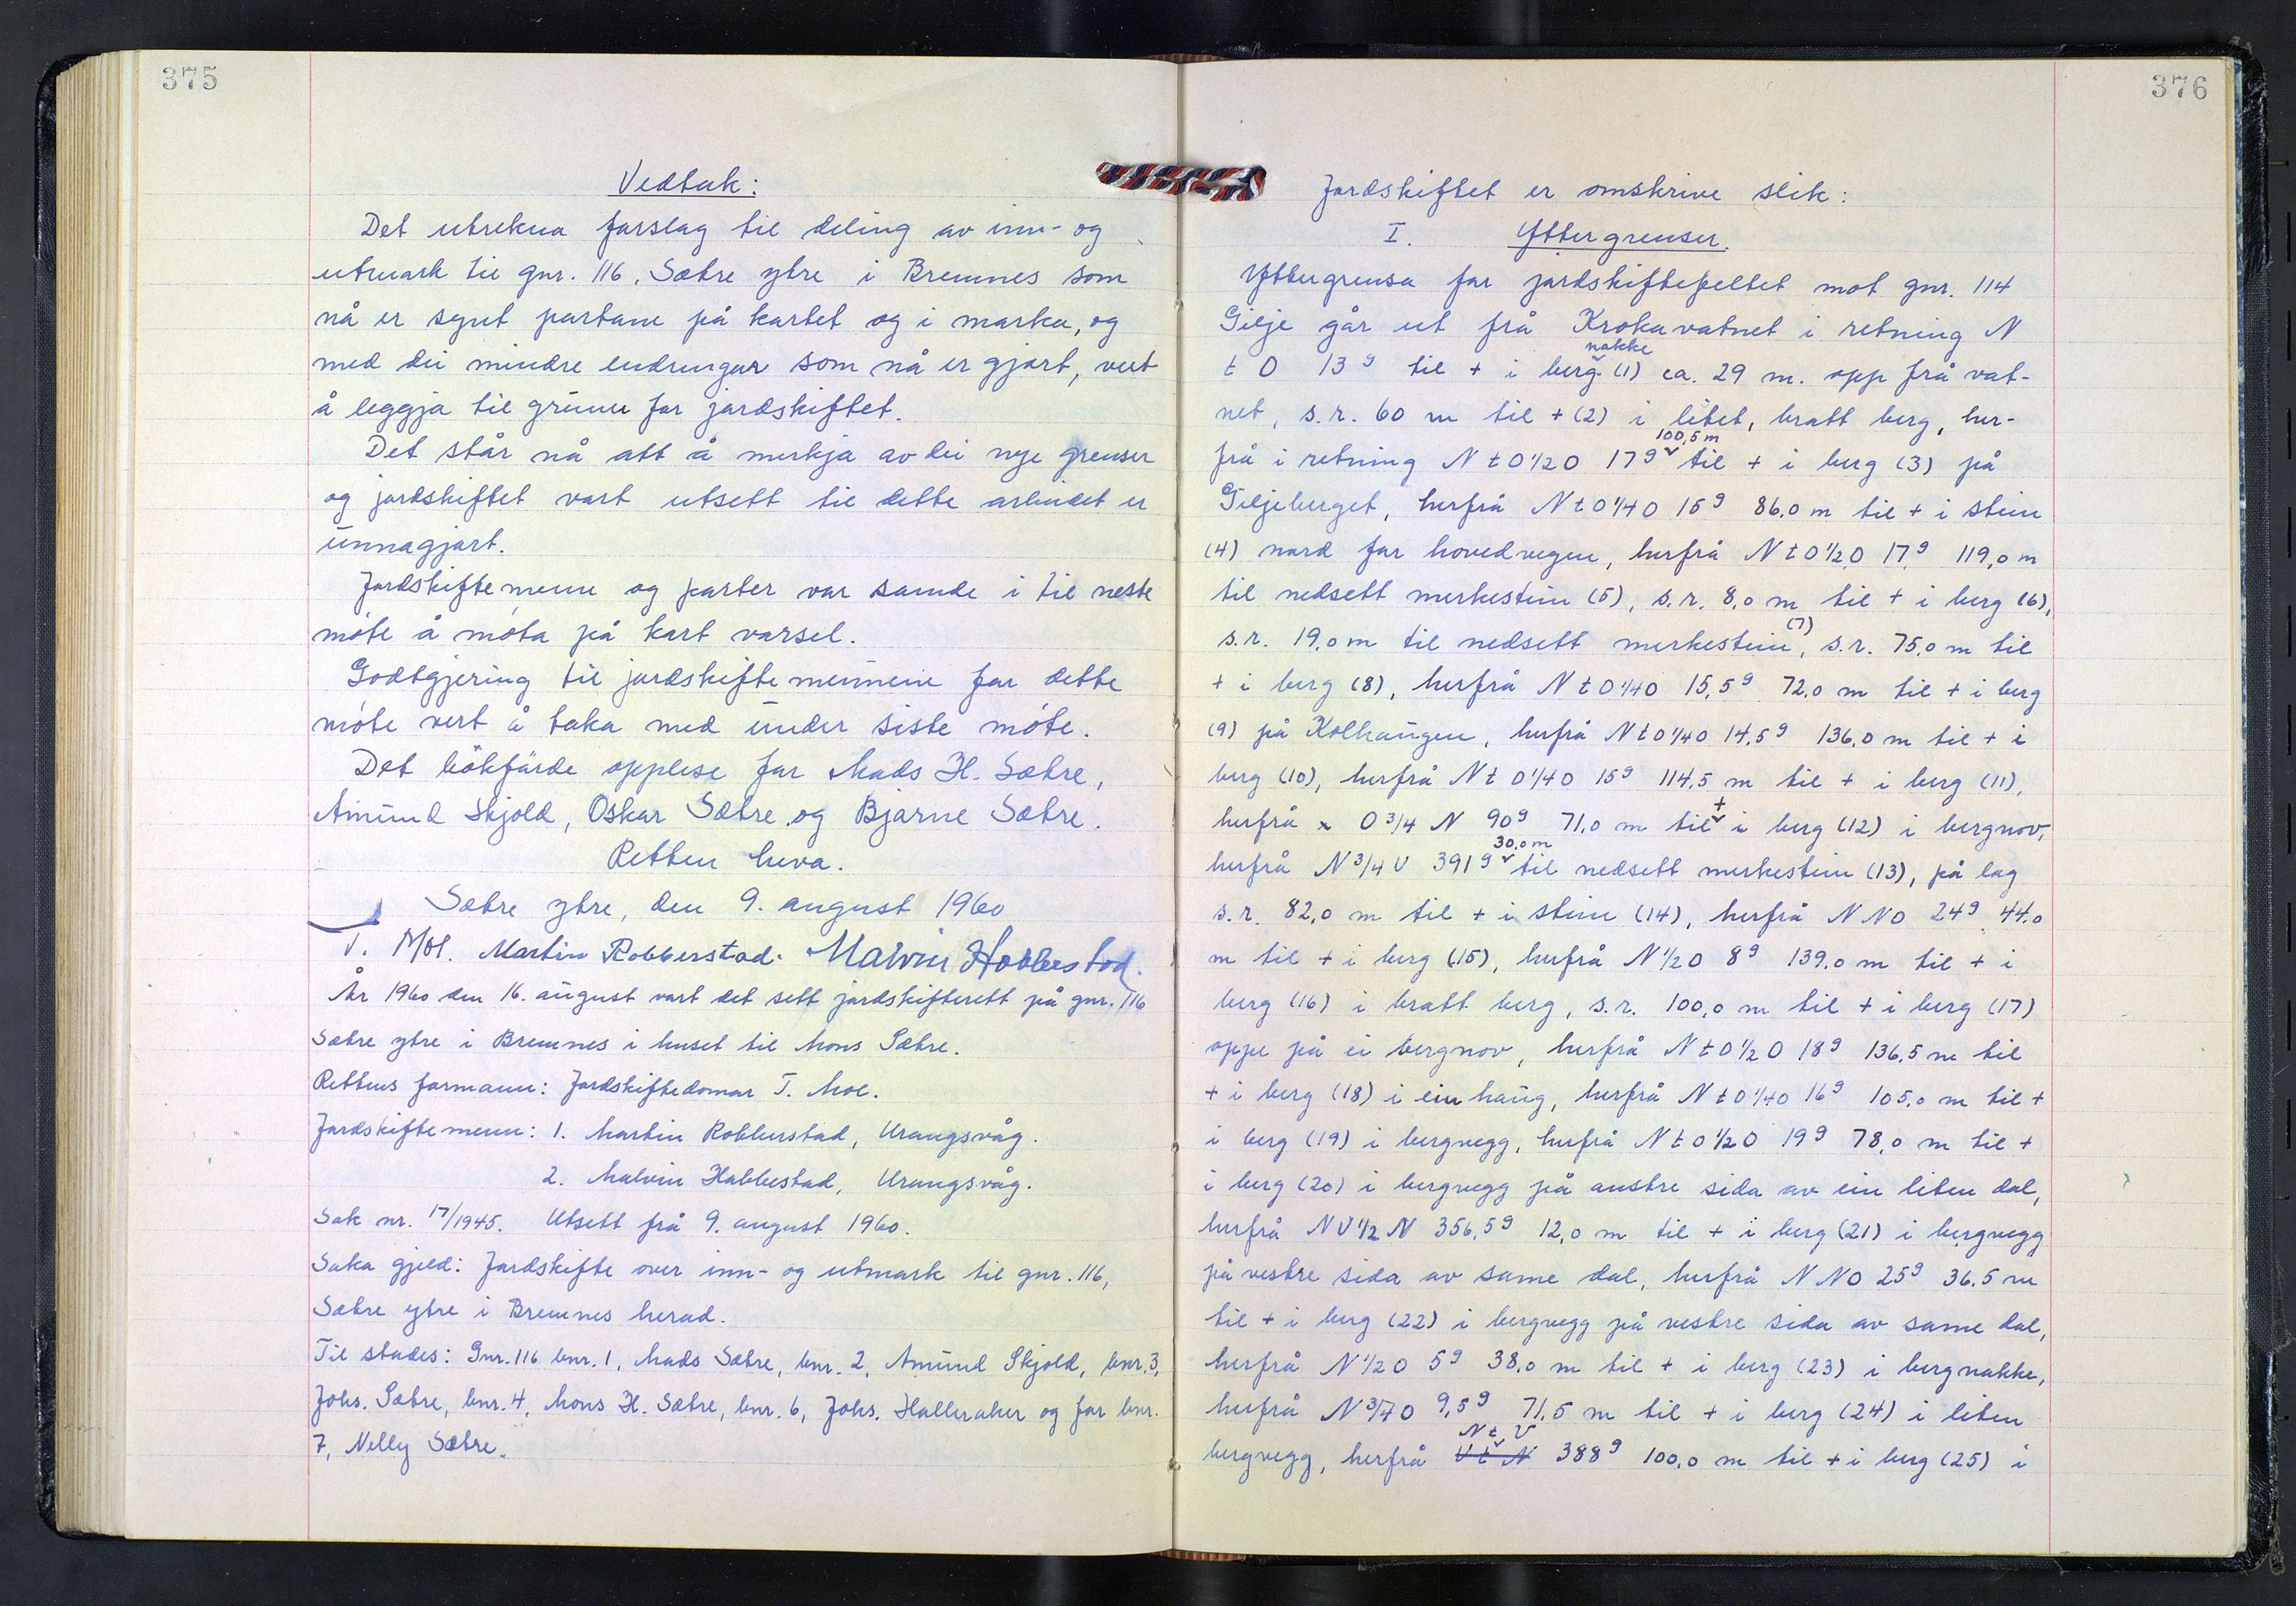 375
Vedtak:
Det utrekna forslag til deling av inn- og
utmark til gnr. 116, Sætre ytre i Bremnes som
nå er synt partane på kartet og i marka, og
med dei mindre endringar som nå er gjort, vert
å leggja til grunn for jordskiftet.
Det står nå att å merkja av dei nye grenser
og jordskiftet vart utsett til dette arbeidet er
unnagjort.
Jordskiftemenn og parter var samde i til neste
møte å møta på kort varsel.
Godtgjering til jordskiftemennene for dette
møte vert å taka med under siste møte.
Det bokførde opplese for Mads H. Sætre,
Amund Skjold, Oskar Sætre og Bjarne Sætre.
Retten heva.
Sætre ytre, den 9. august 1960
T. Moe. Martin Robberstad. Malvin Habbestad.
År 1960 den 16. august vart det sett jordskifterett på gnr. 116
Sætre ytre i Bremnes i huset til Mons Sætre.
Rettens formann: Jordskiftedomar T. Moe.
Jordskiftemenn: 1. Martin Robberstad, Urangsvåg.
2. Malvin Habbestad, Urangsvåg.
Sak nr. 17/1945. Utsett frå 9. august 1960.
Saka gjeld: Jordskifte over inn- og utmark til gnr. 116,
Sætre ytre i Bremnes herad.
Til stades: Gnr. 116 bnr. 1, Mads Sætre, bnr. 2, Amund Skjold, bnr. 3,
Johs. Sætre, bnr. 4, Mons H. Sætre, bnr. 6, Johs. Halleraker og for bnr.
7, Nelly Sætre.
376
Jordskiftet er omskrive slik:
I. Yttergrenser.
Yttergrensa for jordskiftefeltet mot gnr. 114
Gilje går ut frå Krokavatnet i retning N
t O 13g til + i berg nakke (1) ca. 29 m. opp frå vat-
net, s.r. 60 m til + (2) i litet, bratt berg, her-
frå i retning N t O 1/2 O 17g 100,5 m til + i berg (3) på
Giljeberget, herfrå N t O 1/4 O 15g 86,0 m til + i stein
(4) nord for hovedvegen, herfrå N t O 1/2 O 17g 119,0 m
til nedsett merkestein (5), s.r. 8,0 m til + i berg (6),
s.r. 19,0 m til nedsett merkestein (7), s.r. 75,0 m til
+ i berg (8), herfrå N t O 1/4 O 15,5g 72,0 m til + i berg
(9) på Kolhaugen, herfrå N t O 1/4 O 14,5g 136,0 m til + i
berg (10), herfrå N t O 1/4 O 15g 114,5 m til + i berg (11),
herfrå O 3/4 N 90g 71,0 m til + i berg (12) i bergnov,
herfrå N 3/4 V 391g 30,0 m til nedsett merkestein (13), på lag
s.r. 82,0 m til + i stein (14), herfrå N N O 24g 44,0
m til + i berg (15), herfrå N 1/2 O 8g 139,0 m til + i
berg (16) i bratt berg, s.r. 100,0 m til + i berg (17)
oppe på ei bergnov, herfrå N t O 1/2 O 18g 136,5 m til
+ i berg (18) i ein haug, herfrå N t O 1/4 O 16g 105,0 m til +
i berg (19) i bergvegg, herfrå N t O 1/2 O 19g 78,0 m til +
i berg (20) i bergvegg på austre sida av ein liten dal,
herfrå N V 1/2 N 356,5g 12,0 m til + i berg (21) i bergvegg
på vestre sida av same dal, herfrå N N O 25g 36,5 m
til + i berg (22) i bergvegg på vestre sida av same dal,
herfrå N 1/2 O 5g 38,0 m til + i berg (23) i bergnakke,
herfrå N 3/4 O 9,5g 71,5 m til + i berg (24) i liten
bergvegg, herfrå V t N N t V 388g 100,0 m til + i berg (25) i